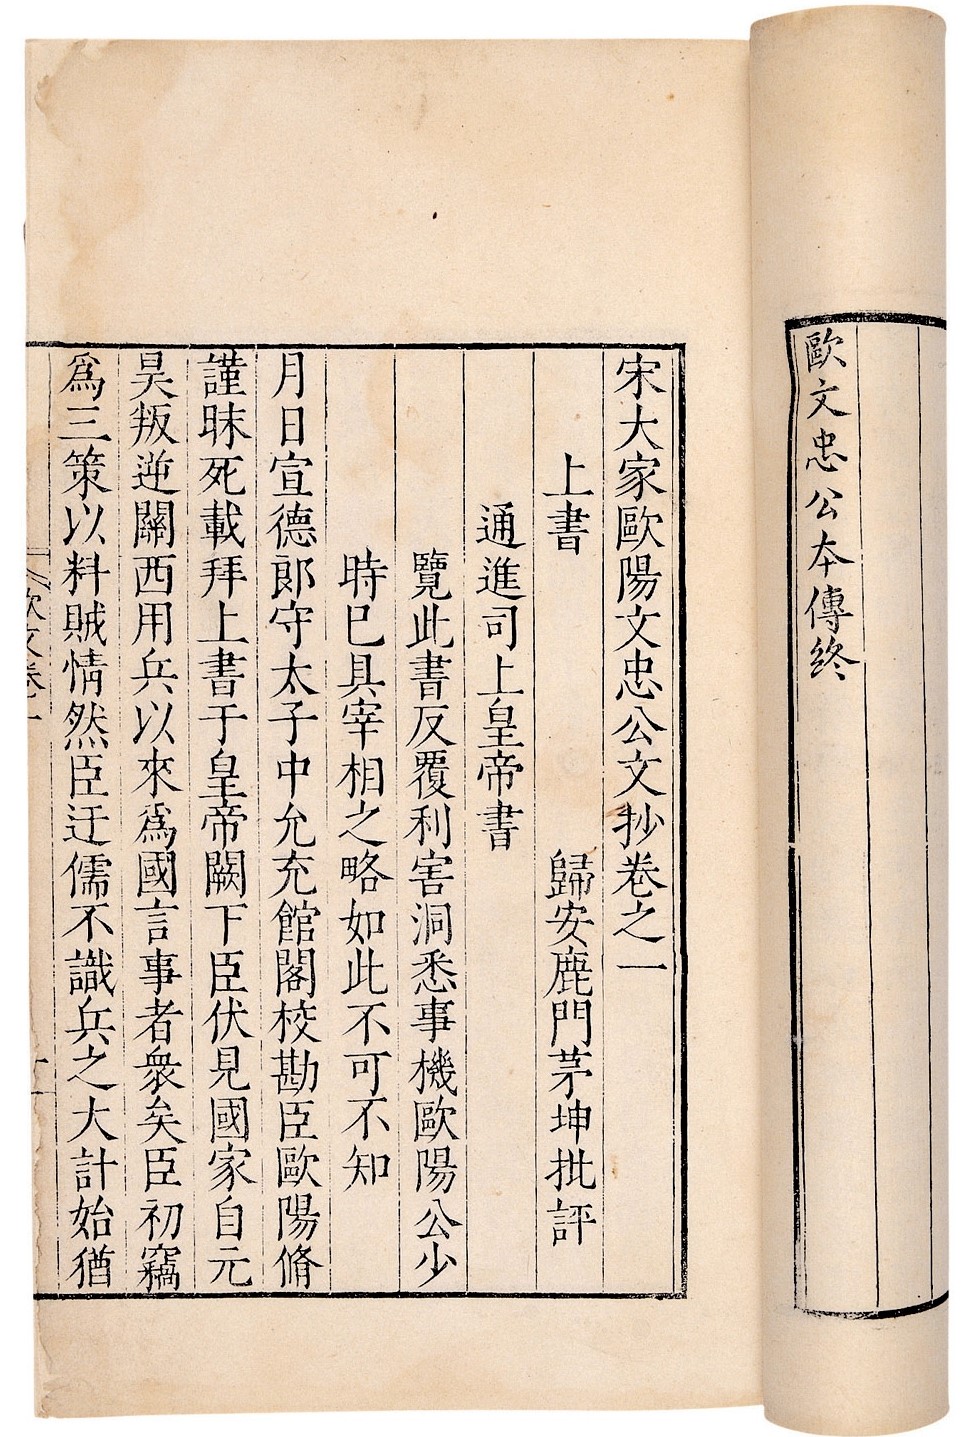 歐文忠公本傳終
宋大家歐陽文忠公文抄卷之一
上書
歸安鹿門茅坤批評
通進司上皇帝書
覽此書反覆利害洞悉事機歐陽公少
時已具宰相之略如此不可不知
月日宣德郎守太子中允充館閣校勘臣歐陽脩
謹昧死載拜上書于皇帝闕下臣伏見國家自元
昊叛逆關西用兵以來爲國言事者衆矣臣初竊
爲三策以料賊情然臣迂儒不識兵之大計始猶
歐文卷一